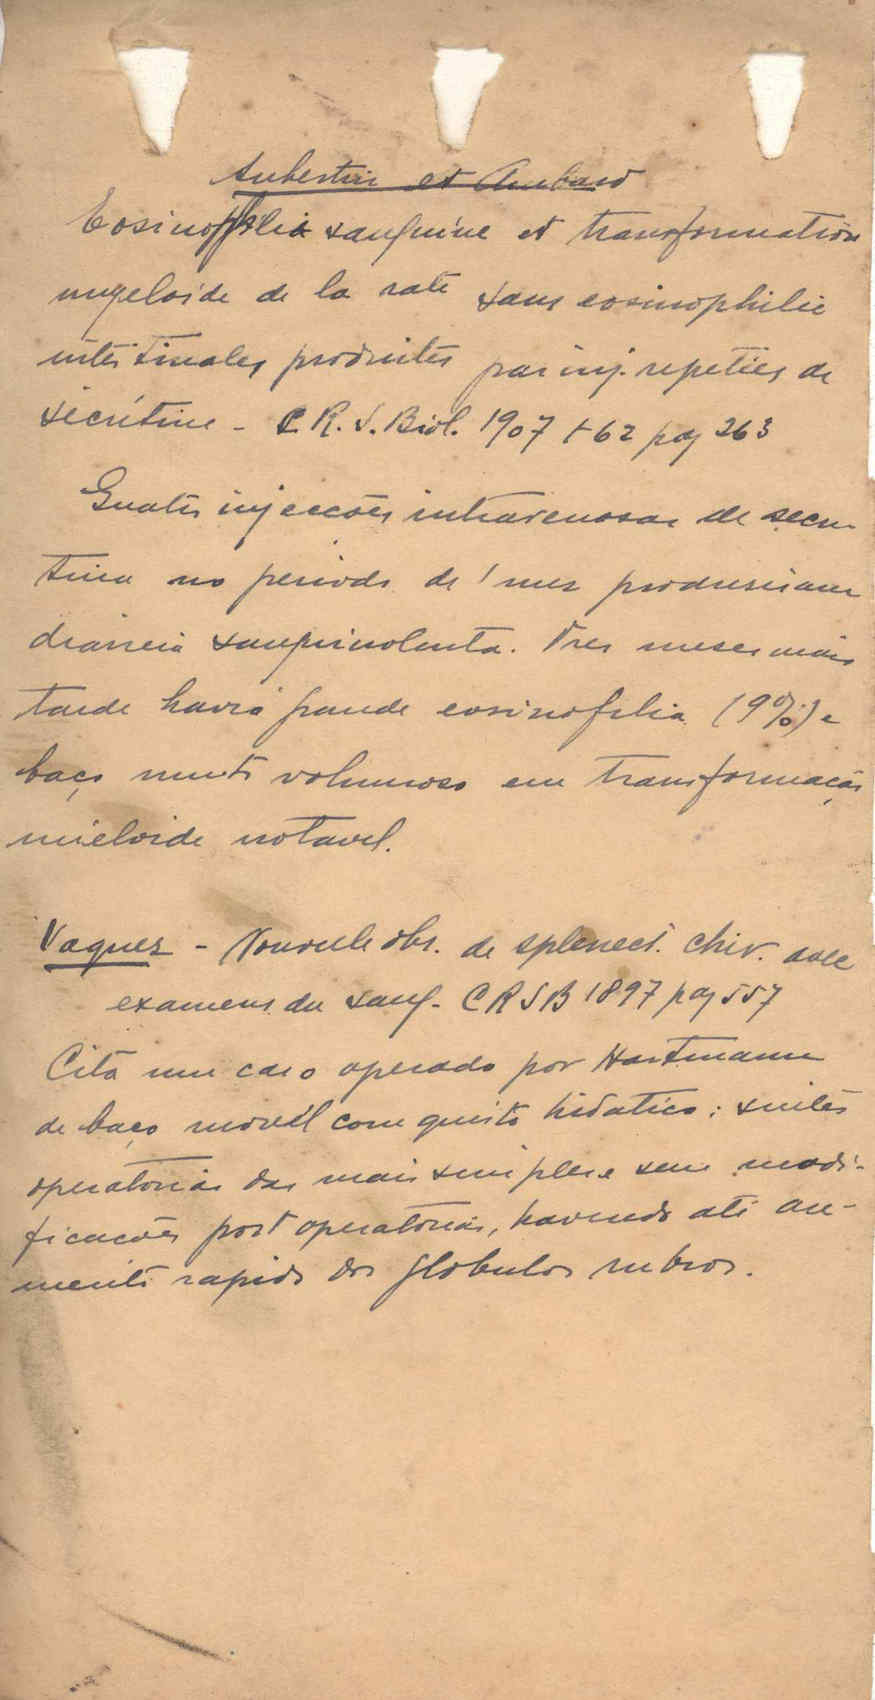 Aubertin et Ambard
Eosinophilie sanguine et transformation
myeloide de la rate sans eosinophilie
intestinales produites par inj. repeties de
sécrétine - C. R. S. Biol. 1907 t 62 pag 263
Quatro injeccões intravenosas de secre-
tina no periodo de 1 mez produsiram
diarreia sanguinolenta. Tres meses mais
tarde havia grande eosinofilia (9%) e
baço muito volumoso em transformação
mieloide notavel.
Vaquez - Nouvelle obs. de splenect. chir. avec
examens du sang - C R S B 1897 pag 557
Cita um caso operado por Hartmann
de baço movel com quisto hidatico : suites
operatorias das mais simples e sem modi-
ficacões post operatorias, havendo até au-
mento rapido dos globulos rubros.